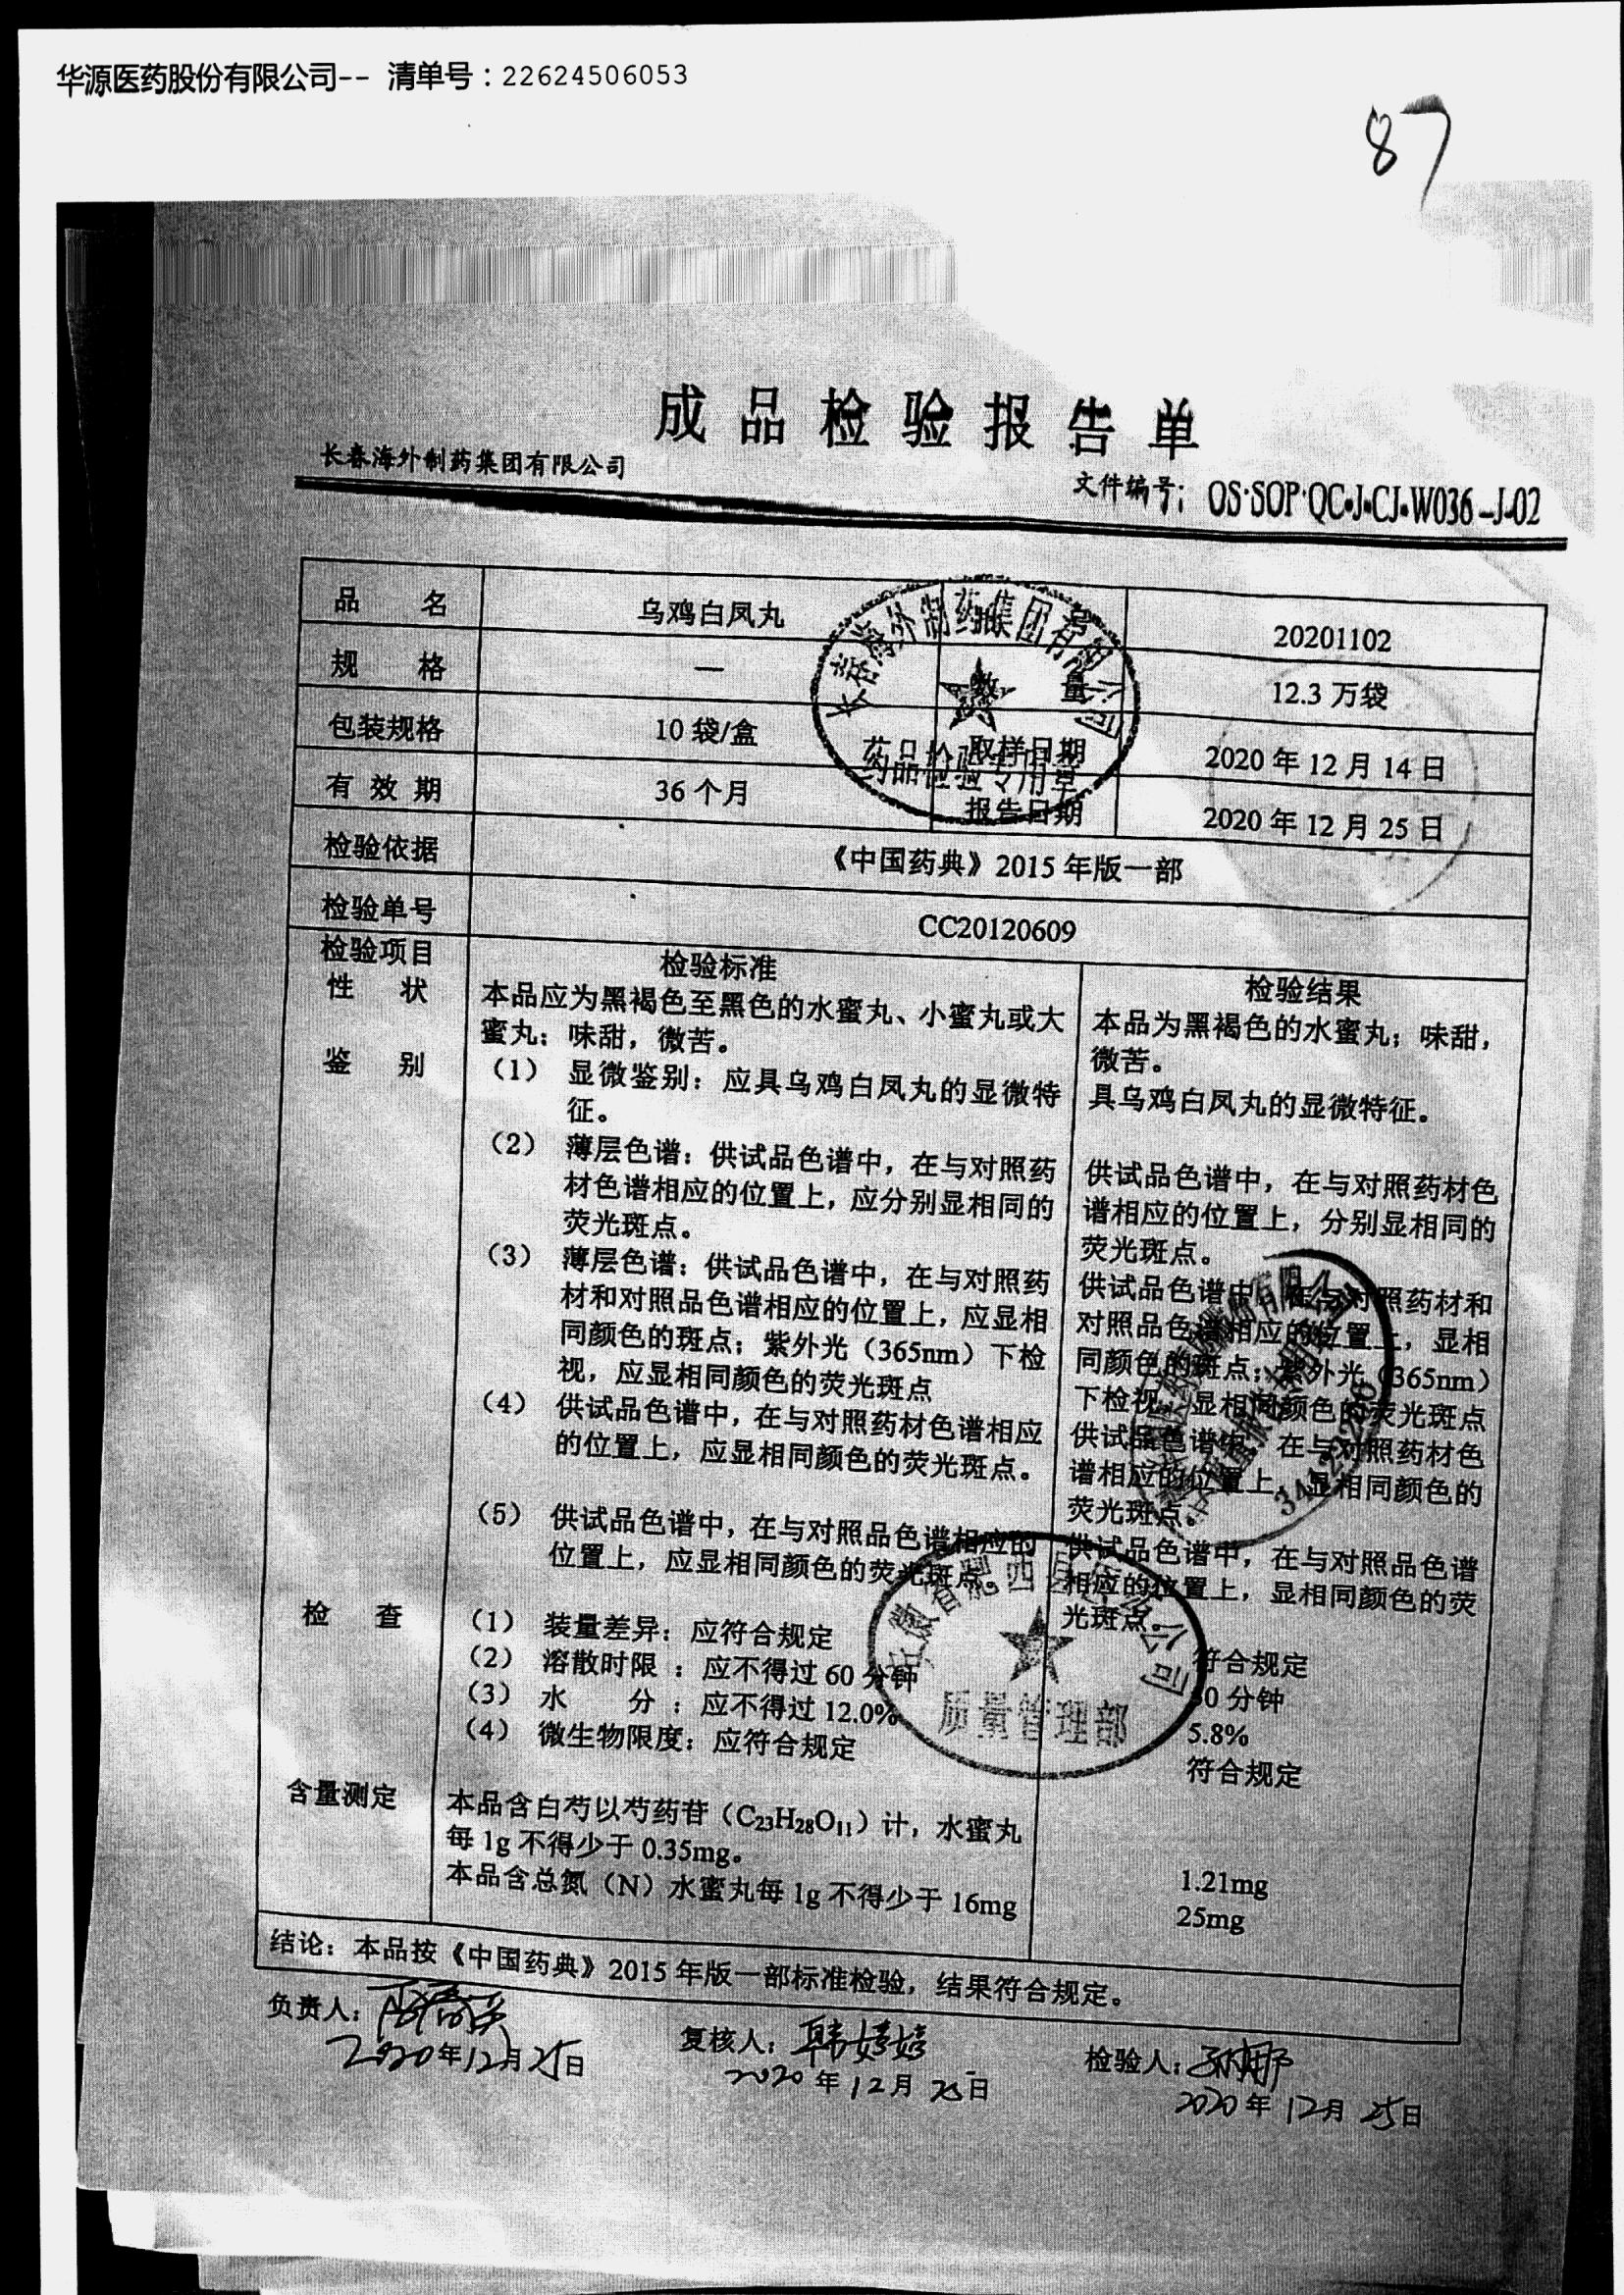 华源医药股份有限公司-- 清单号：22624506053
87
成品检验报告单
长春海外制药集团有限公司
文件编号：OS·SOP·QC·J·CJ·W036-J-02
品 名 乌鸡白凤丸 号 20201102
规 格 — 数 量 12.3 万袋
包装规格 10 袋/盒 取样日期 2020 年 12 月 14 日
有 效 期 36 个月 报告日期 2020 年 12 月 25 日
长春海外制药集团有限公司
药品检验专用章
检验依据 《中国药典》2015 年版一部
检验单号 CC20120609
检验项目 检验标准 检验结果
性 状 本品应为黑褐色至黑色的水蜜丸、小蜜丸或大
蜜丸；味甜，微苦。
本品为黑褐色的水蜜丸；味甜，
微苦。
鉴 别 （1） 显微鉴别：应具乌鸡白凤丸的显微特
征。
具乌鸡白凤丸的显微特征。
（2） 薄层色谱：供试品色谱中，在与对照药
材色谱相应的位置上，应分别显相同的
荧光斑点。
供试品色谱中，在与对照药材色
谱相应的位置上，分别显相同的
荧光斑点。
（3） 薄层色谱：供试品色谱中，在与对照药
材和对照品色谱相应的位置上，应显相
同颜色的斑点；紫外光（365nm）下检
视，应显相同颜色的荧光斑点
供试品色谱中，在与对照药材和
对照品色谱相应的位置上，显相
同颜色的斑点；紫外光（365nm）
下检视，显相同颜色的荧光斑点
（4） 供试品色谱中，在与对照药材色谱相应
的位置上，应显相同颜色的荧光斑点。
供试品色谱中，在与对照药材色
谱相应的位置上，显相同颜色的
荧光斑点。
（5） 供试品色谱中，在与对照品色谱相应的
位置上，应显相同颜色的荧光斑点。
供试品色谱中，在与对照品色谱
相应的位置上，显相同颜色的荧
光斑点。
检 查 （1） 装量差异：应符合规定 符合规定
（2） 溶散时限 ：应不得过 60 分钟 0 分钟
（3） 水 分 ：应不得过 12.0% 5.8%
（4） 微生物限度：应符合规定 符合规定
质量管理部
含量测定 本品含白芍以芍药苷（C₂₃H₂₈O₁₁）计，水蜜丸
每 1g 不得少于 0.35mg。 1.21mg
本品含总氮（N）水蜜丸每 1g 不得少于 16mg 25mg
结论：本品按《中国药典》2015 年版一部标准检验，结果符合规定。
负责人：
2020年12月25日
复核人：韩婷婷
2020年12月25日
检验人：
2020年12月25日